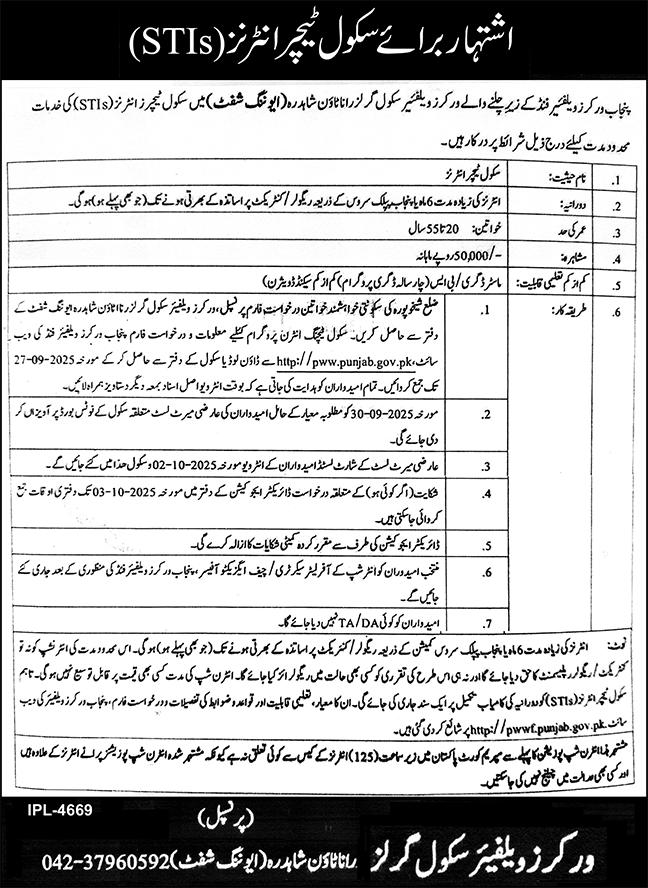 اشتہار برائے سکول ٹیچر انٹرنز (STIs)
پنجاب ورکرز ویلفیئر فنڈ کے زیر چلنے والے ورکرز ویلفیئر سکول گرلز رانا ٹاؤن شاہدرہ (ایوننگ شفٹ) میں سکول ٹیچرز انٹرنز (STIs) کی خدمات
محدود مدت کیلئے درج ذیل شرائط پر درکار ہیں۔
1. نام حیثیت: سکول ٹیچر انٹرنز
2. دورانیہ: انٹرنز کی زیادہ مدت 6 ماہ یا پنجاب پبلک سروس کے ذریعہ ریگولر/کنٹریکٹ پر اساتذہ کے بھرتی ہونے تک (جو بھی پہلے ہو) ہوگی۔
3. عمر کی حد خواتین: 20 تا 55 سال
4. مشاہرہ: 50,000/- روپے ماہانہ
5. کم از کم تعلیمی قابلیت: ماسٹر ڈگری/بی ایس (چار سالہ ڈگری پروگرام) کم از کم سیکنڈ ڈویژن)
6. طریقہ کار: 1. ضلع شیخوپورہ کی سکونتی خواہشمند خواتین درخواست فارم پرنسپل، ورکرز ویلفیئر سکول گرلز رانا ٹاؤن شاہدرہ ایوننگ شفٹ کے
دفتر سے حاصل کریں۔ سکول ٹیچنگ انٹرن پروگرام کیلئے معلومات و درخواست فارم پنجاب ورکرز ویلفیئر فنڈ کی ویب
سائٹ، http://pww.punjab.gov.pk سے ڈاؤن لوڈ یا سکول کے دفتر سے حاصل کر کے مورخہ 27-09-2025
تک جمع کروائیں۔ تمام امیدواران کو ہدایت کی جاتی ہے کہ بوقت انٹرویو اصل اسناد بمعہ دیگر دستاویز ہمراہ لائیں۔
2. مورخہ 30-09-2025 کو مطلوبہ معیار کے حامل امیدواران کی عارضی میرٹ لسٹ متعلقہ سکول کے نوٹس بورڈ پر آویزاں کر
دی جائے گی۔
3. عارضی میرٹ لسٹ کے شارٹ لسٹڈ امیدواران کے انٹرویو مورخہ 02-10-2025 کو سکول ھذا میں کئے جائیں گے۔
4. شکایت (اگر کوئی ہو) کے متعلقہ درخواست ڈائریکٹر ایجوکیشن کے دفتر میں مورخہ 03-10-2025 تک دفتری اوقات جمع
کروائی جاسکتی ہیں۔
5. ڈائریکٹر ایجوکیشن کی طرف سے مقرر کردہ کمیٹی شکایات کا ازالہ کرے گی۔
6. منتخب امیدوران کو انٹرشپ کے آفر لیٹر سیکرٹری/چیف ایگزیکٹو آفیسر، پنجاب ورکرز ویلفیئر فنڈ کی منظوری کے بعد جاری کئے
جائیں گے۔
7. امیدواران کو کوئی TA/DA نہیں دیا جائے گا۔
نوٹ: انٹرنز کی زیادہ مدت 6 ماہ یا پنجاب پبلک سروس کمیشن کے ذریعہ ریگولر/کنٹریکٹ پر اساتذہ کے بھرتی ہونے تک (جو بھی پہلے ہو) ہوگی۔ اس محدود مدت کی انٹرنشپ کو نہ تو
کنٹریکٹ/ریگولر ریپلیسمنٹ کا حق دیا جائے گا اور نہ ہی اس طرح کی تقرری کو کسی بھی حالت میں ریگولرائز کیا جائے گا۔ انٹرن شپ کی مدت کسی بھی قیمت پر قابل توسیع نہیں ہوگی۔ تاہم
سکول ٹیچر انٹرنز (STIs) کو دورانیہ کی کامیاب تکمیل پر ایک سند جاری کی جائے گی۔ ان کا معیار، تعلیمی قابلیت اور قواعد و ضوابط کی تفصیلات و درخواست فارم، پنجاب ورکرز ویلفیئر کی ویب
سائٹ http://pwwf.punjab.gov.pk پر شائع کر دی گئی ہیں۔
مشتہر ہذا انٹرن شپ پوزیشن کا پہلے سے سپریم کورٹ پاکستان میں زیر سماعت (125) انٹرنز کے کیس سے کوئی تعلق نہ ہے کیونکہ مشتہر شدہ انٹرن شپ پوزیشنز پرانے انٹرنز کے علاوہ ہیں
اور کسی بھی عدالت میں چیلنج نہیں کی جاسکتیں۔
IPL-4669
(پرنسپل)
ورکرز ویلفیئر سکول گرلز رانا ٹاؤن شاہدرہ (ایوننگ شفٹ) 042-37960592